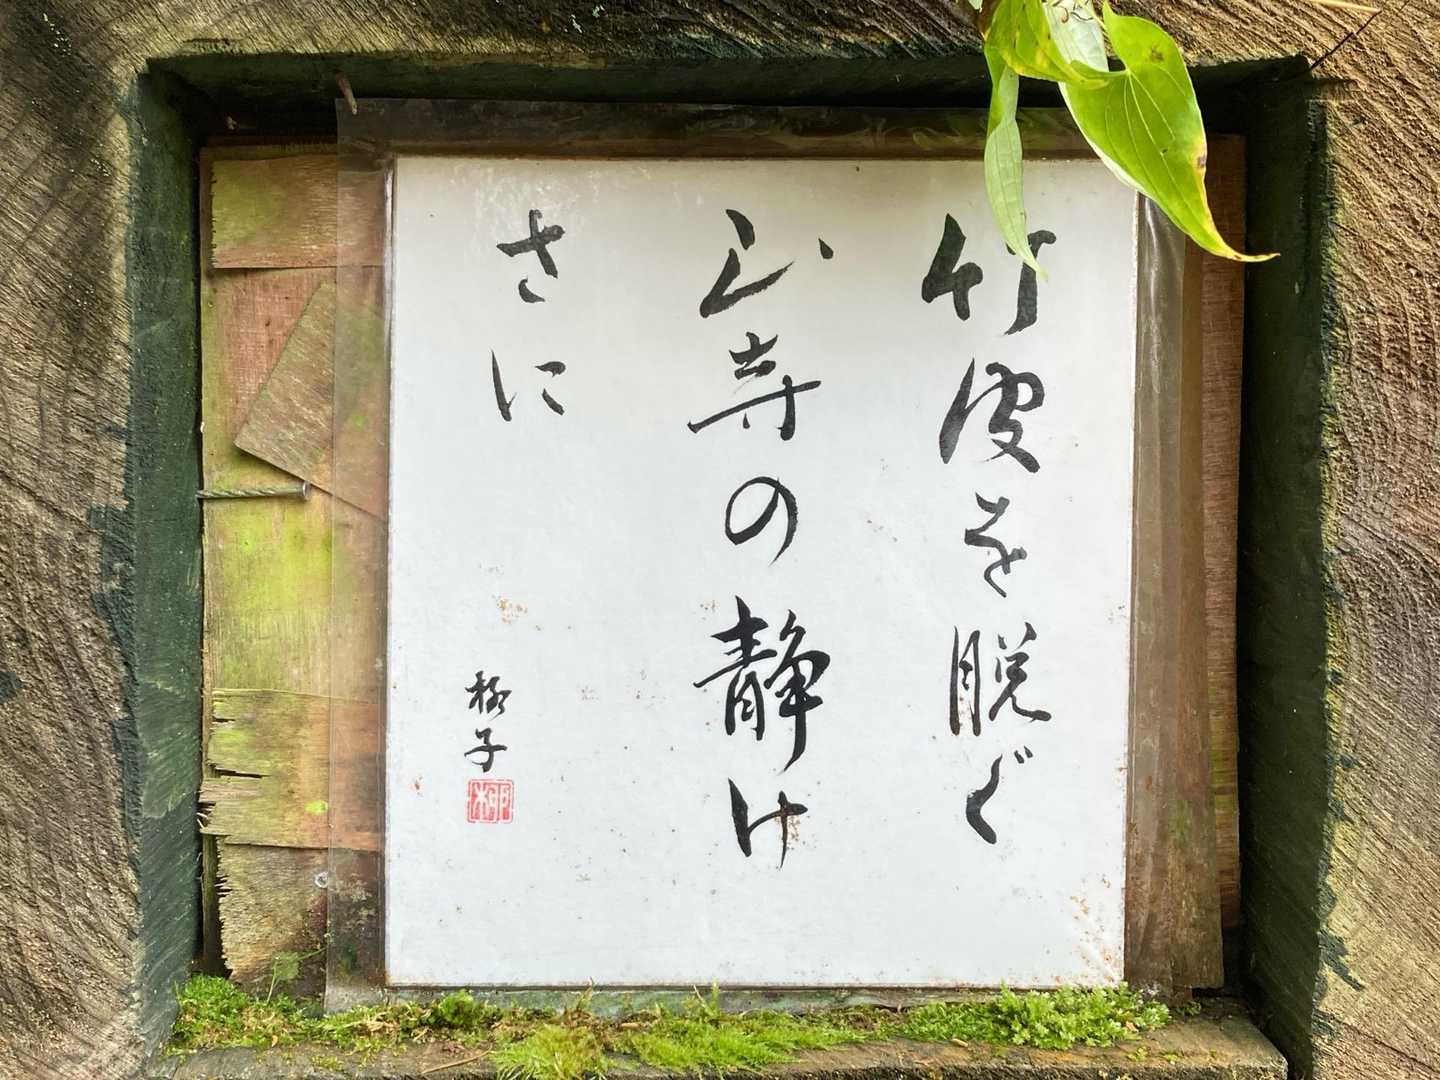 竹皮を脱ぐ
山寺の静け
さに
柳